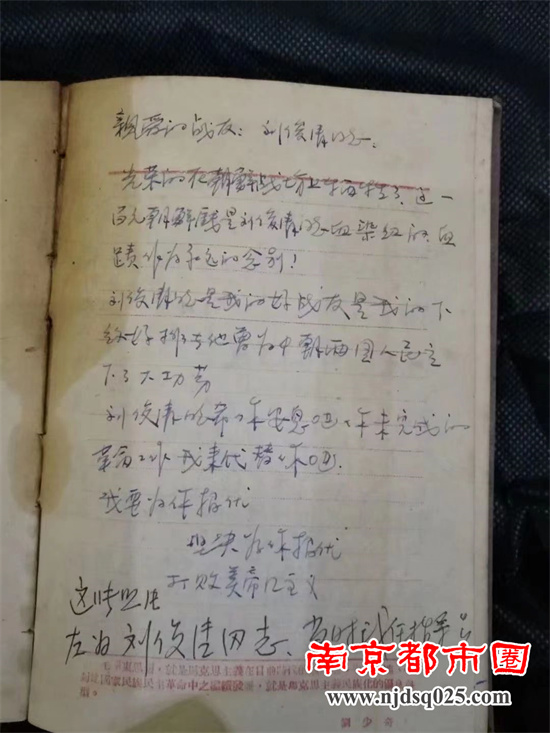 親爱的战友：刘俊清同志
光荣的在朝鲜战场上牺牲了这一
百元朝鲜钱是刘俊清同志血染红的血
蹟作为永远的念别！
刘俊清同志是我的好战友是我的下
级好排长他曾为中朝两国人民立
下了大功劳
刘俊清同志你安息吧你未完成的
革命工作我来代替你吧.
我要为你报仇
坚决为你报仇
打败美帝国主义
这张照片
左为刘俊清同志、当时我任指导员
南京都市圈
www.njdsq025.com
劉少奇